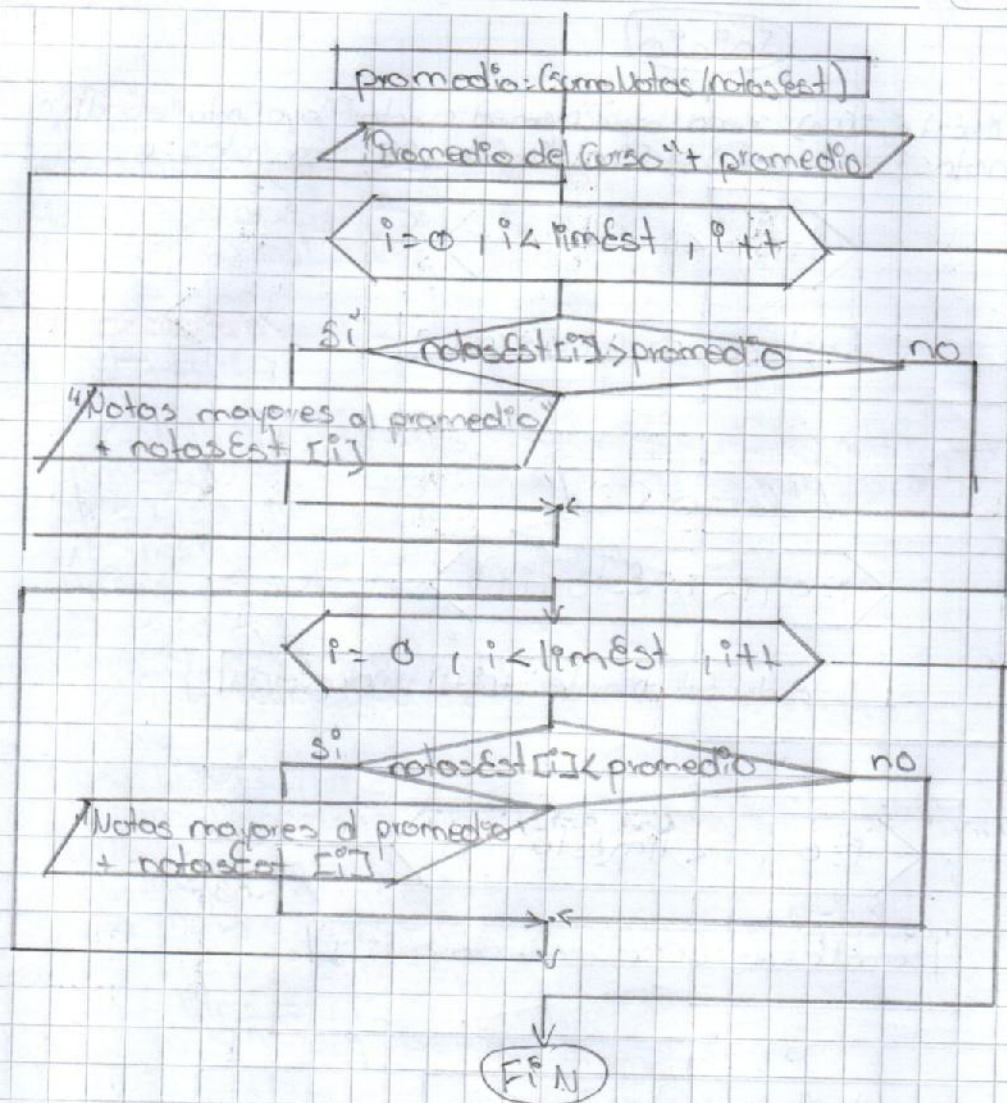 promedio=(SumaNotas/notasEst)
"Promedio del Curso"+ promedio
i=0, i< limEst, i++
si
notasEst[i]>promedio
no
"Notas mayores al promedio"
+ notasEst [i]
i=0, i<limEst, i++
si
notasEst[i]< promedio
no
"Notas mayores al promedio
+ notasEst [i]
FiN